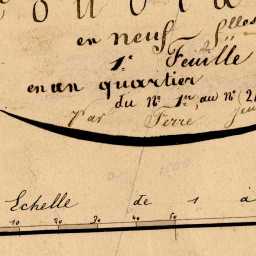 en neuf flles
1.e Feuille
en un quartier
du No 1er au No (2
Par Pierre
Echelle de 1 à
10 20 30 40 50